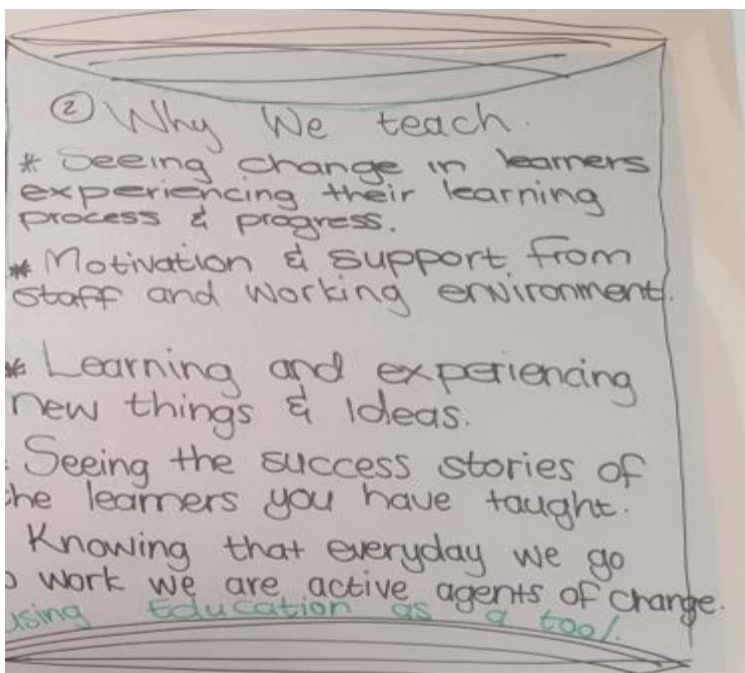 ② Why We teach.
* Seeing change in learners
experiencing their learning
process & progress.
* Motivation & support from
staff and working environment.
* Learning and experiencing
new things & Ideas.
Seeing the success stories of
the learners you have taught.
Knowing that everyday we go
o work we are active agents of change.
using Education as a tool.